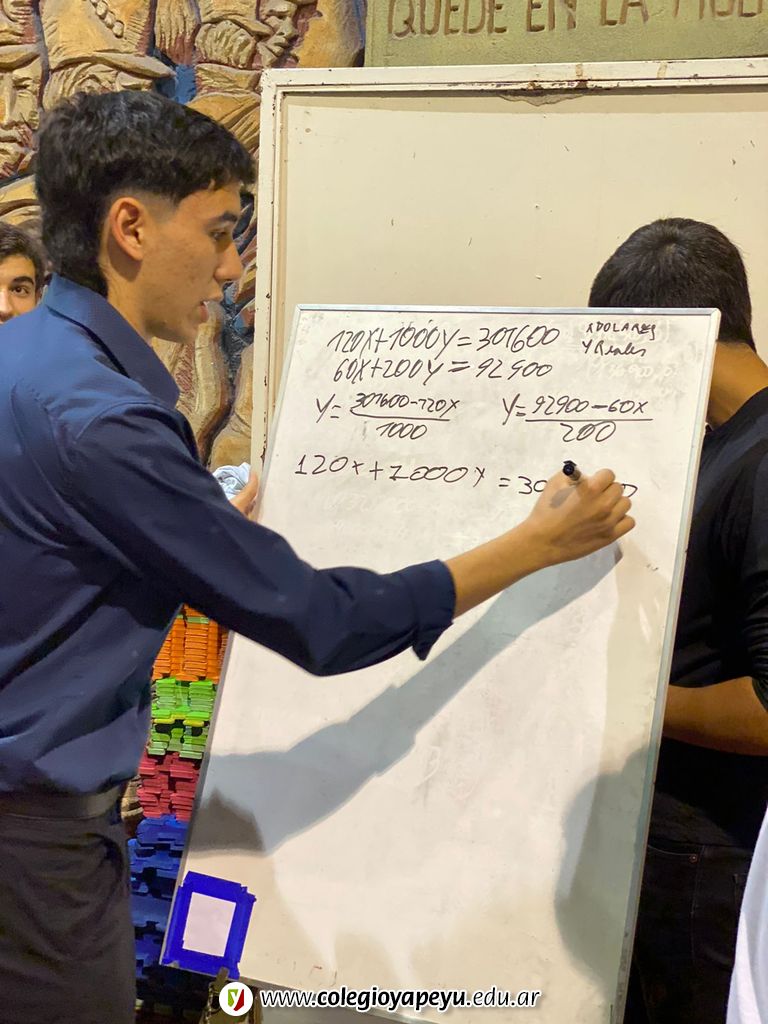 QUEDE EN LA
120X+1000Y=301600
60X+200Y=92900
X DOLARES
Y Reales
Y=301600-120X/1000
Y=92900-60X/200
120X+1000Y =30
www.colegioyapeyu.edu.ar